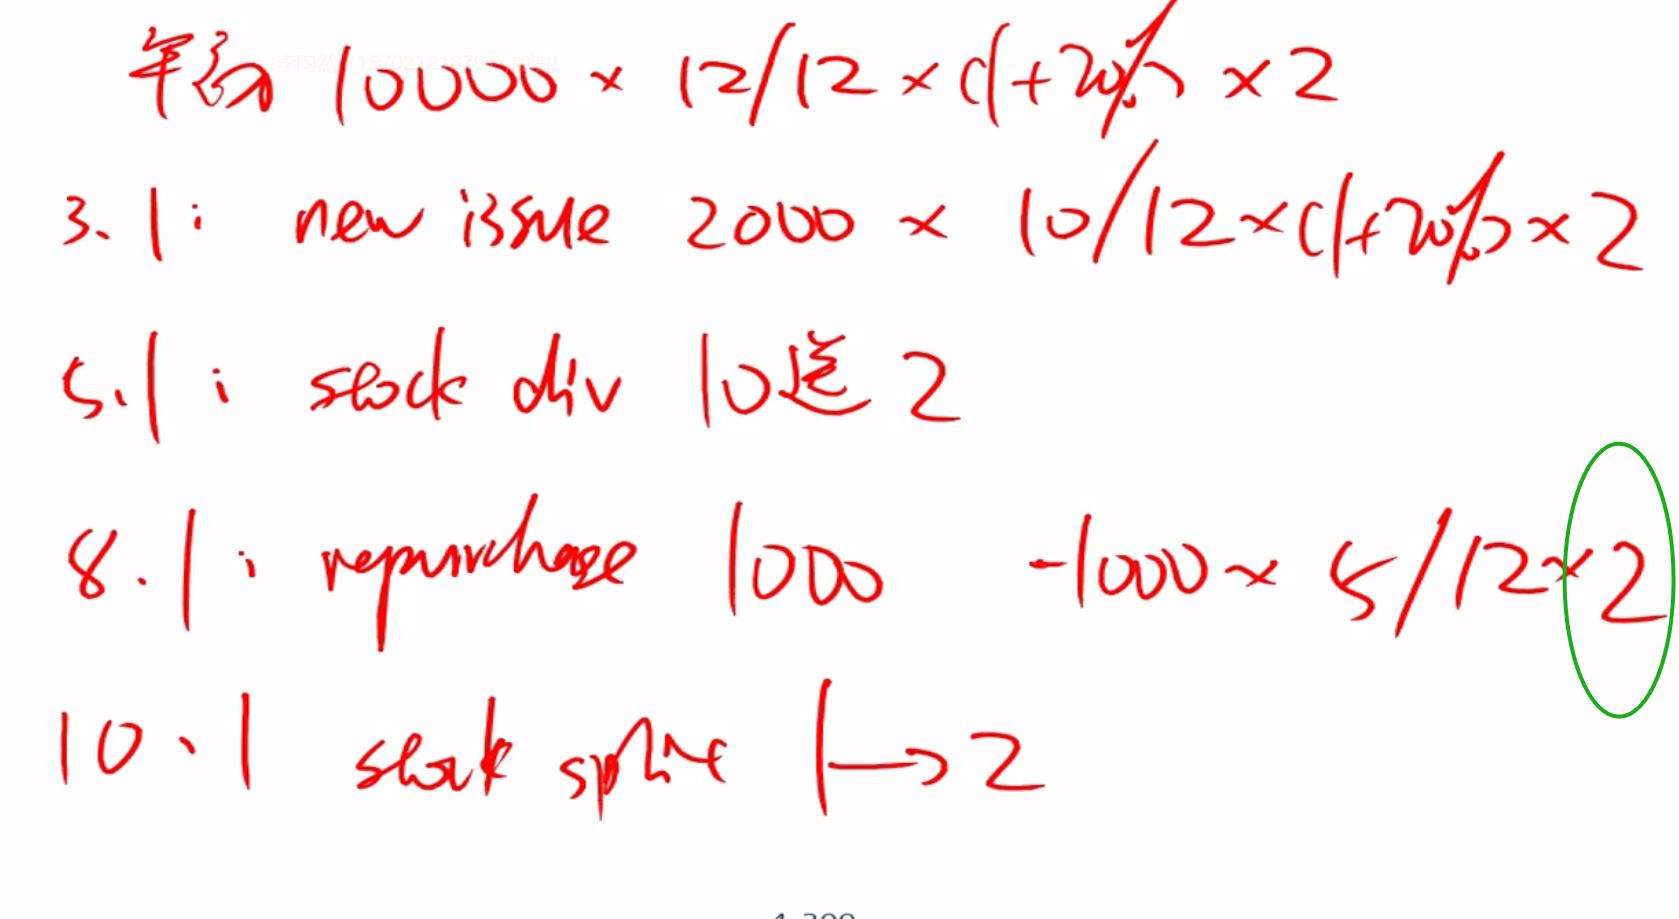 年初 10000 × 12/12 × (1+20%) × 2
3.1: new issue 2000 × 10/12 × (1+20%) × 2
5.1: stock div 10送2
8.1: repurchase 1000 -1000 × 5/12 × 2
10.1 stock split 1→2